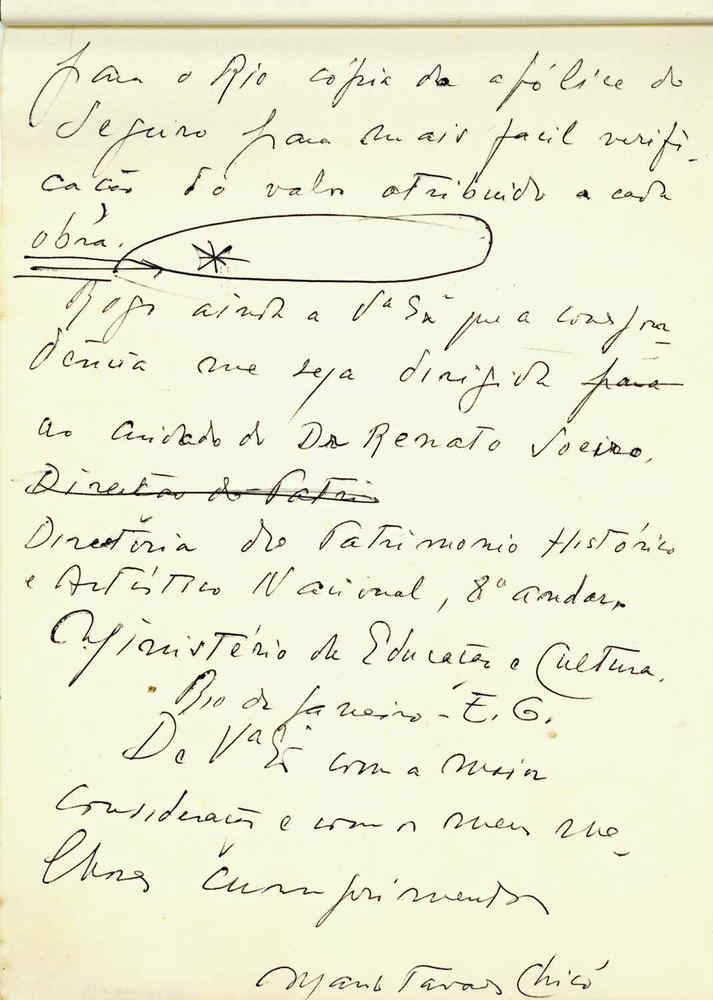 para o Rio cópia da apólice do
Seguro para mais facil verifi-
cação do valor atribuido a cada
obra.
Rogo ainda a Vª Exª que a correspon-
dência me seja dirigida para
ao cuidado do Dr Renato Soeiro.
Direcção do Patri
Directória do Patrimonio Histórico
e Artístico Nacional, 8º andar.
Ministério da Educação e Cultura.
Rio de Janeiro - E. G.
De Vª Exª com a maior
consideração e com os meus me-
lhores cumprimentos
Mario Tavares Chicó